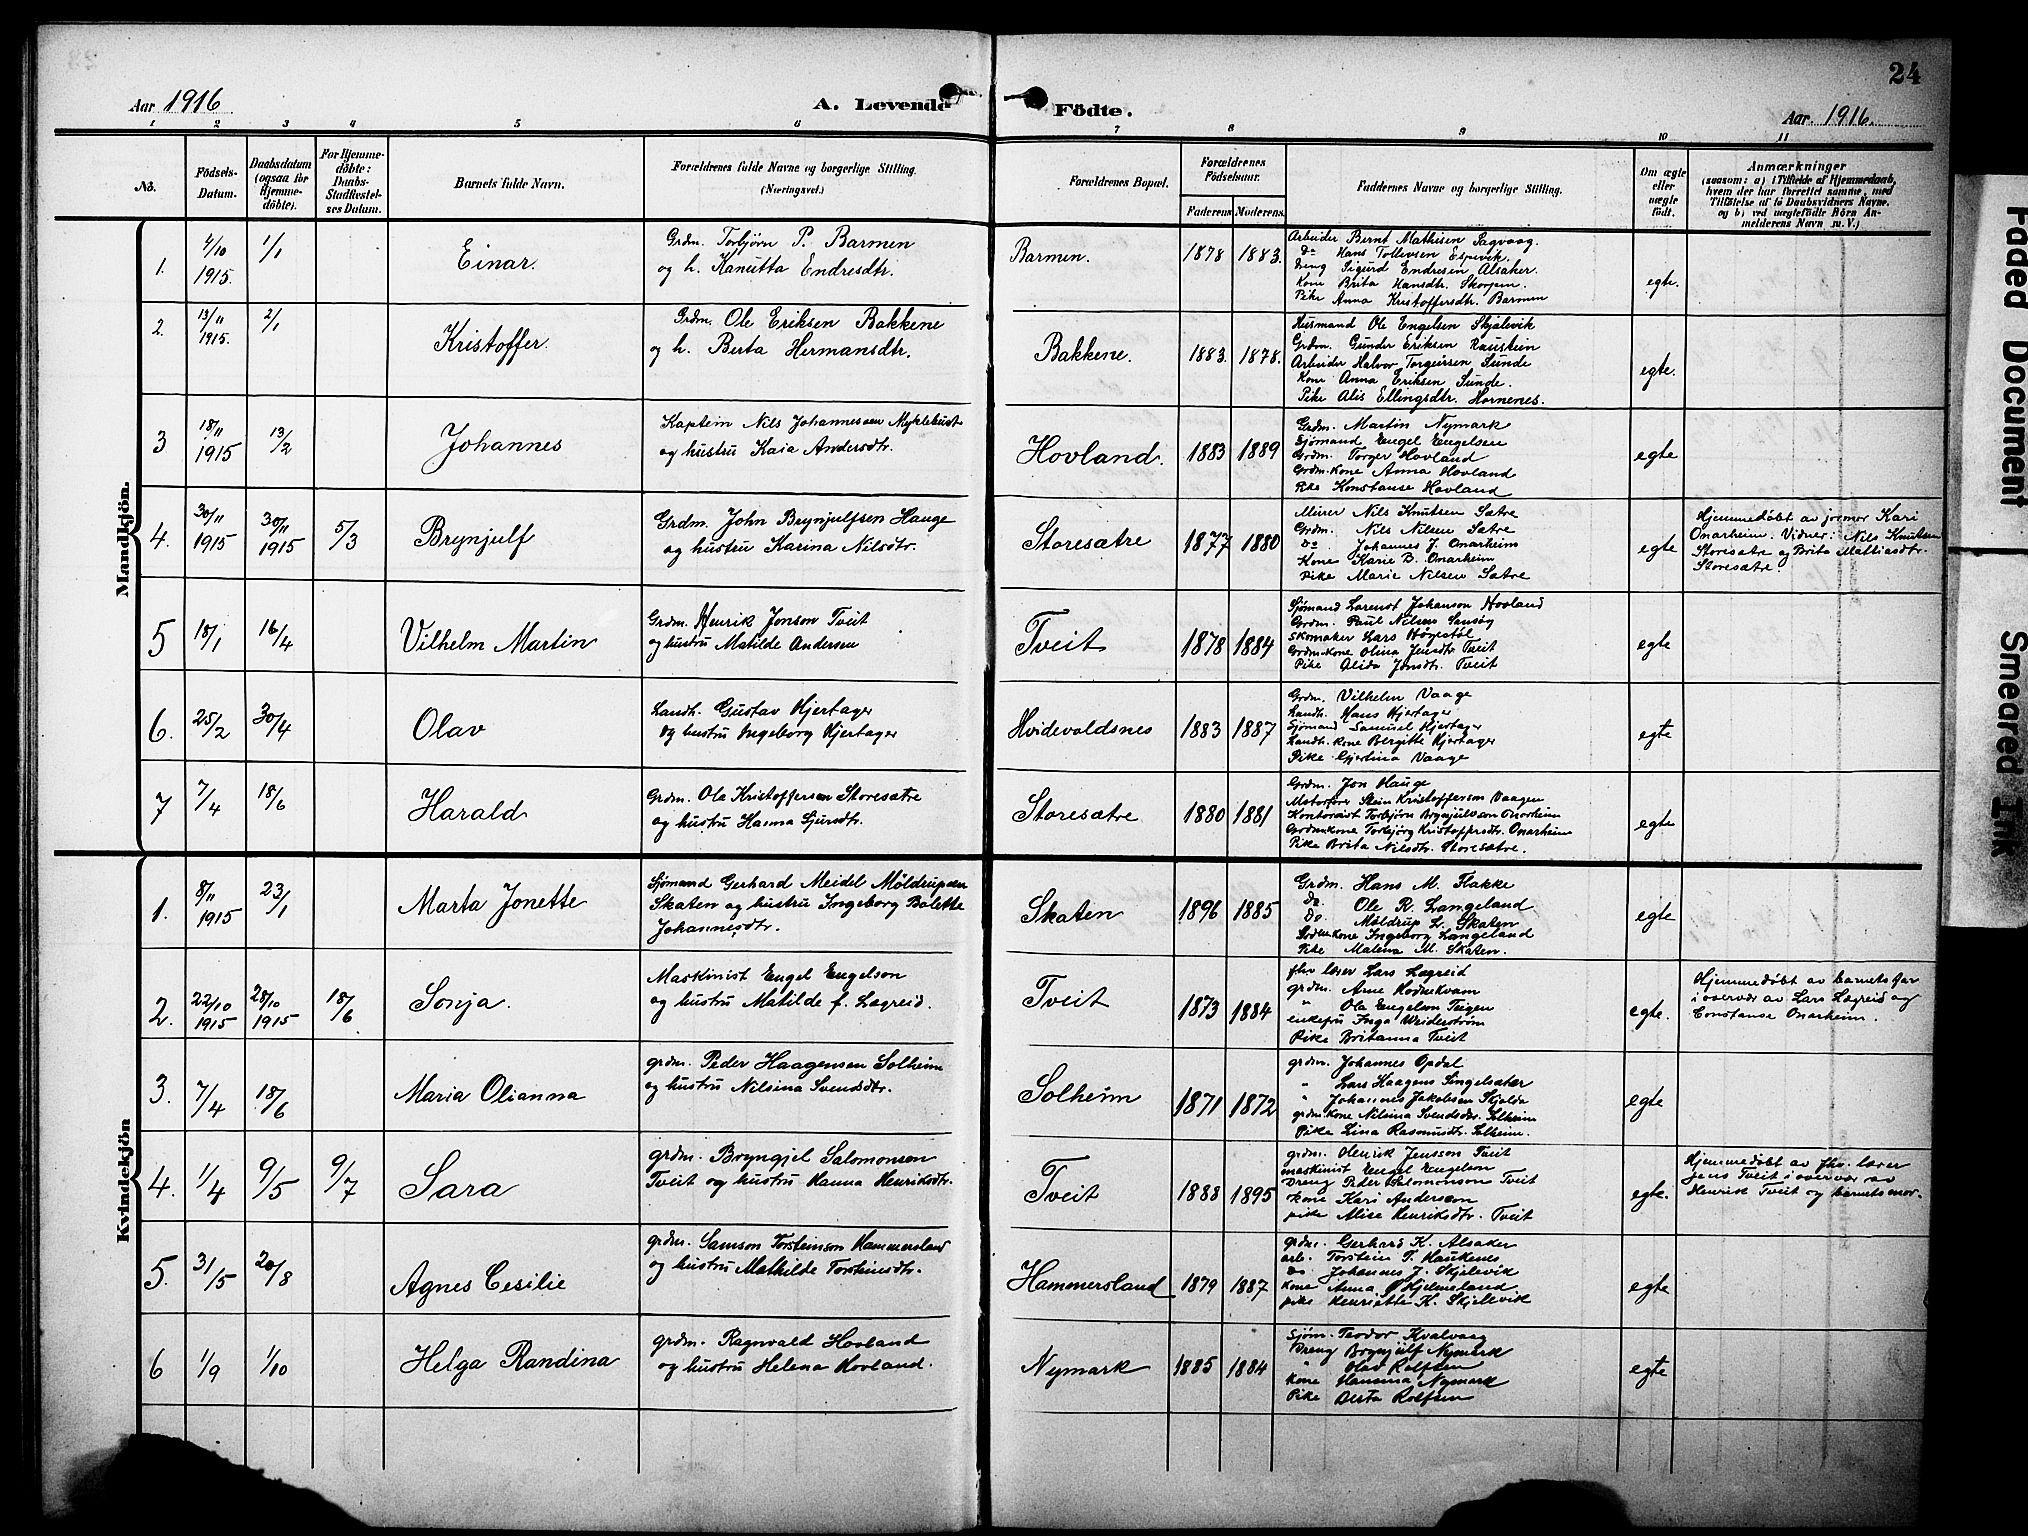 24
Aar 1916
A. Levende Födte.
Aar. 1916.
1 2 3 4 5 6 7 8 9 10 11
No.
Födsels-Datum.
Daabsdatum (ogsaa for Hjemme-döbte).
For Hjemme-döbte: Daabs-Stadfæstel-ses Datum.
Barnets fulde Navn.
Forældrenes fulde Navne og borgerlige Stilling. (Næringsvei.)
Forældrenes Bopæl.
Forældrenes Födselsaar.
Faderens. Moderens.
Faddernes Navne og borgerlige Stilling.
Om ægte eller uægte födt.
Anmærkninger
(saasom: a) i Tilfælde af Hjemmedaab, hvem der har forrettet samme, med Tilföielse af to Daabsvidners Navne. og b) ved uægtefödte Börn An-melderens Navn m. V.)
Mandkjön.
1. 4/10 1915 1/1 Einar.
Grdm. Torbjörn P. Barmen
og h. Kanutta Endresdtr.
Barmen. 1878 1883.
Arbeider Bernt Mathisen Sagvaag.
do Hans Tollevsen Espevik.
Dreng Sigurd Endresen Alsaker.
Kone Brita Hansdtr. Skorpen.
Pike Anna Kristoffersdtr. Barmen
egte.
2. 13/11 1915. 2/1 Kristoffer.
Grdm. Ole Eriksen Bakkene
og h. Berta Hermansdtr.
Bakkene. 1883. 1878.
Husmand Ole Engelsen Skjølevik
Grdm. Gunder Eriksen Raustein
Arbeider Halvor Torgeirsen Sunde
Kone Anna Eriksen Sunde.
Pike Alis Ellingsdtr. Hornenes.
egte.
3 18/11 1915 13/2 Johannes
Kaptein Nils Johannessen Myklebust
og hustru Kaia Andersdtr.
Hovland. 1883 1889
Grdm. Martin Nymark
Sjømand Engel Engelsen
Grdm. Torger Hovland
Grdm.kone Anna Hovland
Pike Konstanse Hovland
egte
4. 30/11 1915 30/11 1915 5/3 Brynjulf
Grdm. John Brynjulfsen Hauge
og hustru Karina Nilsdtr.
Storesætre 1877 1880
Murer Nils Knutsen Sætre
Grdm. Nils Nilsen Sætre
do Johannes J. Onarheim
Kone Karie B. Onarheim
Pike Marie Nilsen Sætre
egte
Hjemmedøbt av jormor Kari
Onarheim. Vidner: Nils Knutsen
Storesætre og Brita Mattiasdtr.
Storesætre.
5 18/1 16/4 Vilhelm Martin
Grdm. Henrik Jonson Tveit
og hustru Matilde Andersen
Tveit 1878 1884
Sjømand Lorenst Johanson Hovland
Grdm. Paul Nilsen Sansøy
Skomaker Lars Høgestøl
Grdm.kone Olina Jensdtr. Tveit
Pike Alida Jonsdtr. Tveit
egte
6. 25/2 30/4 Olav
Landh. Gustav Hjertager
og hustru Ingeborg Hjertager
Hvidevoldsnes 1883 1887
Grdm. Vilhelm Vaage
Landh. Hans Hjertager
Sjømand Samuel Hjertager
Landh. kone Bergitte Hjertager
Pike Gjertina Vaage
egte
7 7/4 18/6 Harald
Grdm. Ole Kristoffersen Storesætre
og hustru Hanna Sjursdtr.
Storesætre 1880 1881
Grdm. Jon Hauge
Motorfører Stein Kristofferson Vaagen
Kontorist Torbjørn Brynjulfsen Onarheim
Grdm.kone Torbjørg Kristoffersdtr. Onarheim
Pike Brita Nilsdtr. Storesætre.
egte
Kvindekjön
1. 8/11 1915 23/1 Marta Jonette
Sjømand Gerhard Meidel Möldrupsen
Skaten og hustru Ingeborg Bolette
Johannesdtr.
Skaten 1896 1885
Grdm. Hans M. Flakke
do. Ole R. Langeland
do. Möldrup L. Skaten
Grdm.kone Ingeborg Langeland
Pike Malena M. Skaten.
egte
2. 22/10 1915 28/10 1915 18/6 Sonja.
Maskinist Engel Engelson
og hustru Matilde f. Lægreid.
Tveit 1873 1884
fhv. lærer Lars Lægreid
grdm. Arne Hodnekvam
" Ola Engelson Teigen
enkefru Inga Weiderstrøm
Pike Britanna Tveit
egte.
Hjemmedøbt av barnets far
i overvær av Lars Lægreid og
Constanse Onarheim.
3. 7/4 18/6 Maria Olianna
grdm. Peder Haagensen Solheim
og hustru Nilsina Svendsdtr.
Solheim 1871 1872
grdm. Johannes Opdal
" Lars Haagens Singelsæter
" Johannes Jakobsen Skjelde
grdm.kone Nilsina Svendsdtr. Solheim
Pike Lina Rasmusdtr. Solheim.
egte
4. 1/4 9/5 9/7 Sara
grdm. Bryngjel Salomonsen
Tveit og hustru Hanna Henriksdtr.
Tveit 1888 1895
grdm. Henrik Jensson Tveit
maskinist Engel Engelson
Dreng Peder Salomonson Tveit
kone Kari Anderson
pike Alise Henriksdtr. Tveit
egte.
Hjemmedøbt av fhv. lærer
Jens Tveit i overvær av
Henrik Tveit og barnets mor.
5. 31/5 20/8 Agnes Cesilie
grdm. Samson Torsteinson Hammersland
og hustru Mathilde Torsteinsdtr.
Hammersland 1879 1887
grdm. Gerhard K. Alsaker
arb. Torstein T. Haukenes
do Johannes J. Skjelevik
kone Anna Hjelmeland
pike Henriette K. Skjelevik
egte
6 1/9 1/10 Helga Randina
grdm. Ragnvald Hovland
og hustru Helena Hovland.
Nymark 1885 1884
Sjøm. Teodor Kvalvaag
Dreng Brynjulf Nymark
" Olav Rolfsen
Kone Hansina Nymark
Pike Berta Rolfsen
egte
Faded Document
Smeared Ink